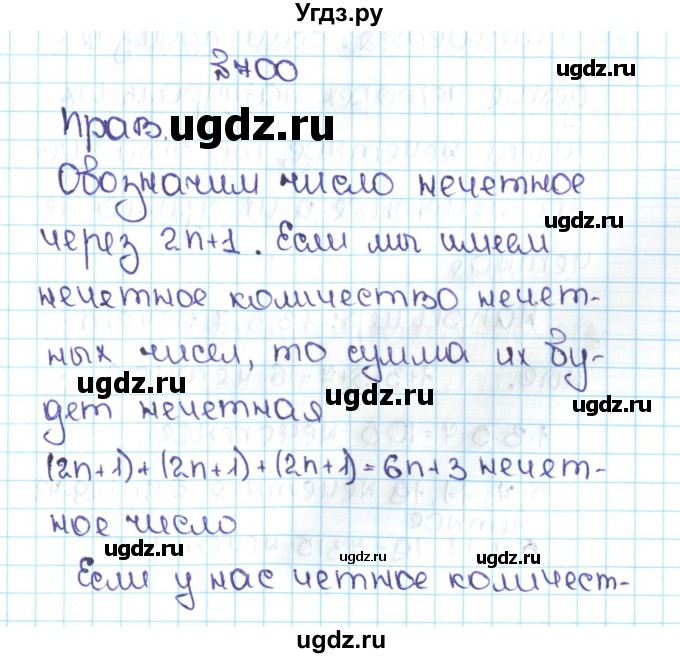 Угдз.ру
№ 700
ugdz.ru
Прав. ugdz.ru
Обозначим число нечетное
ugdz.ru
через 2n+1. Если мы имеем
нечетное количество нечет-
ных чисел, то сумма их бу-
ugdz.ru ugdz.ru ugdz.ru
дет нечетная
(2n+1)+(2n+1)+(2n+1)=6n+3 нечет-
ное число
ugdz.ru ugdz.ru ugdz.ru
Если у нас четное количест-
ugdz.ru